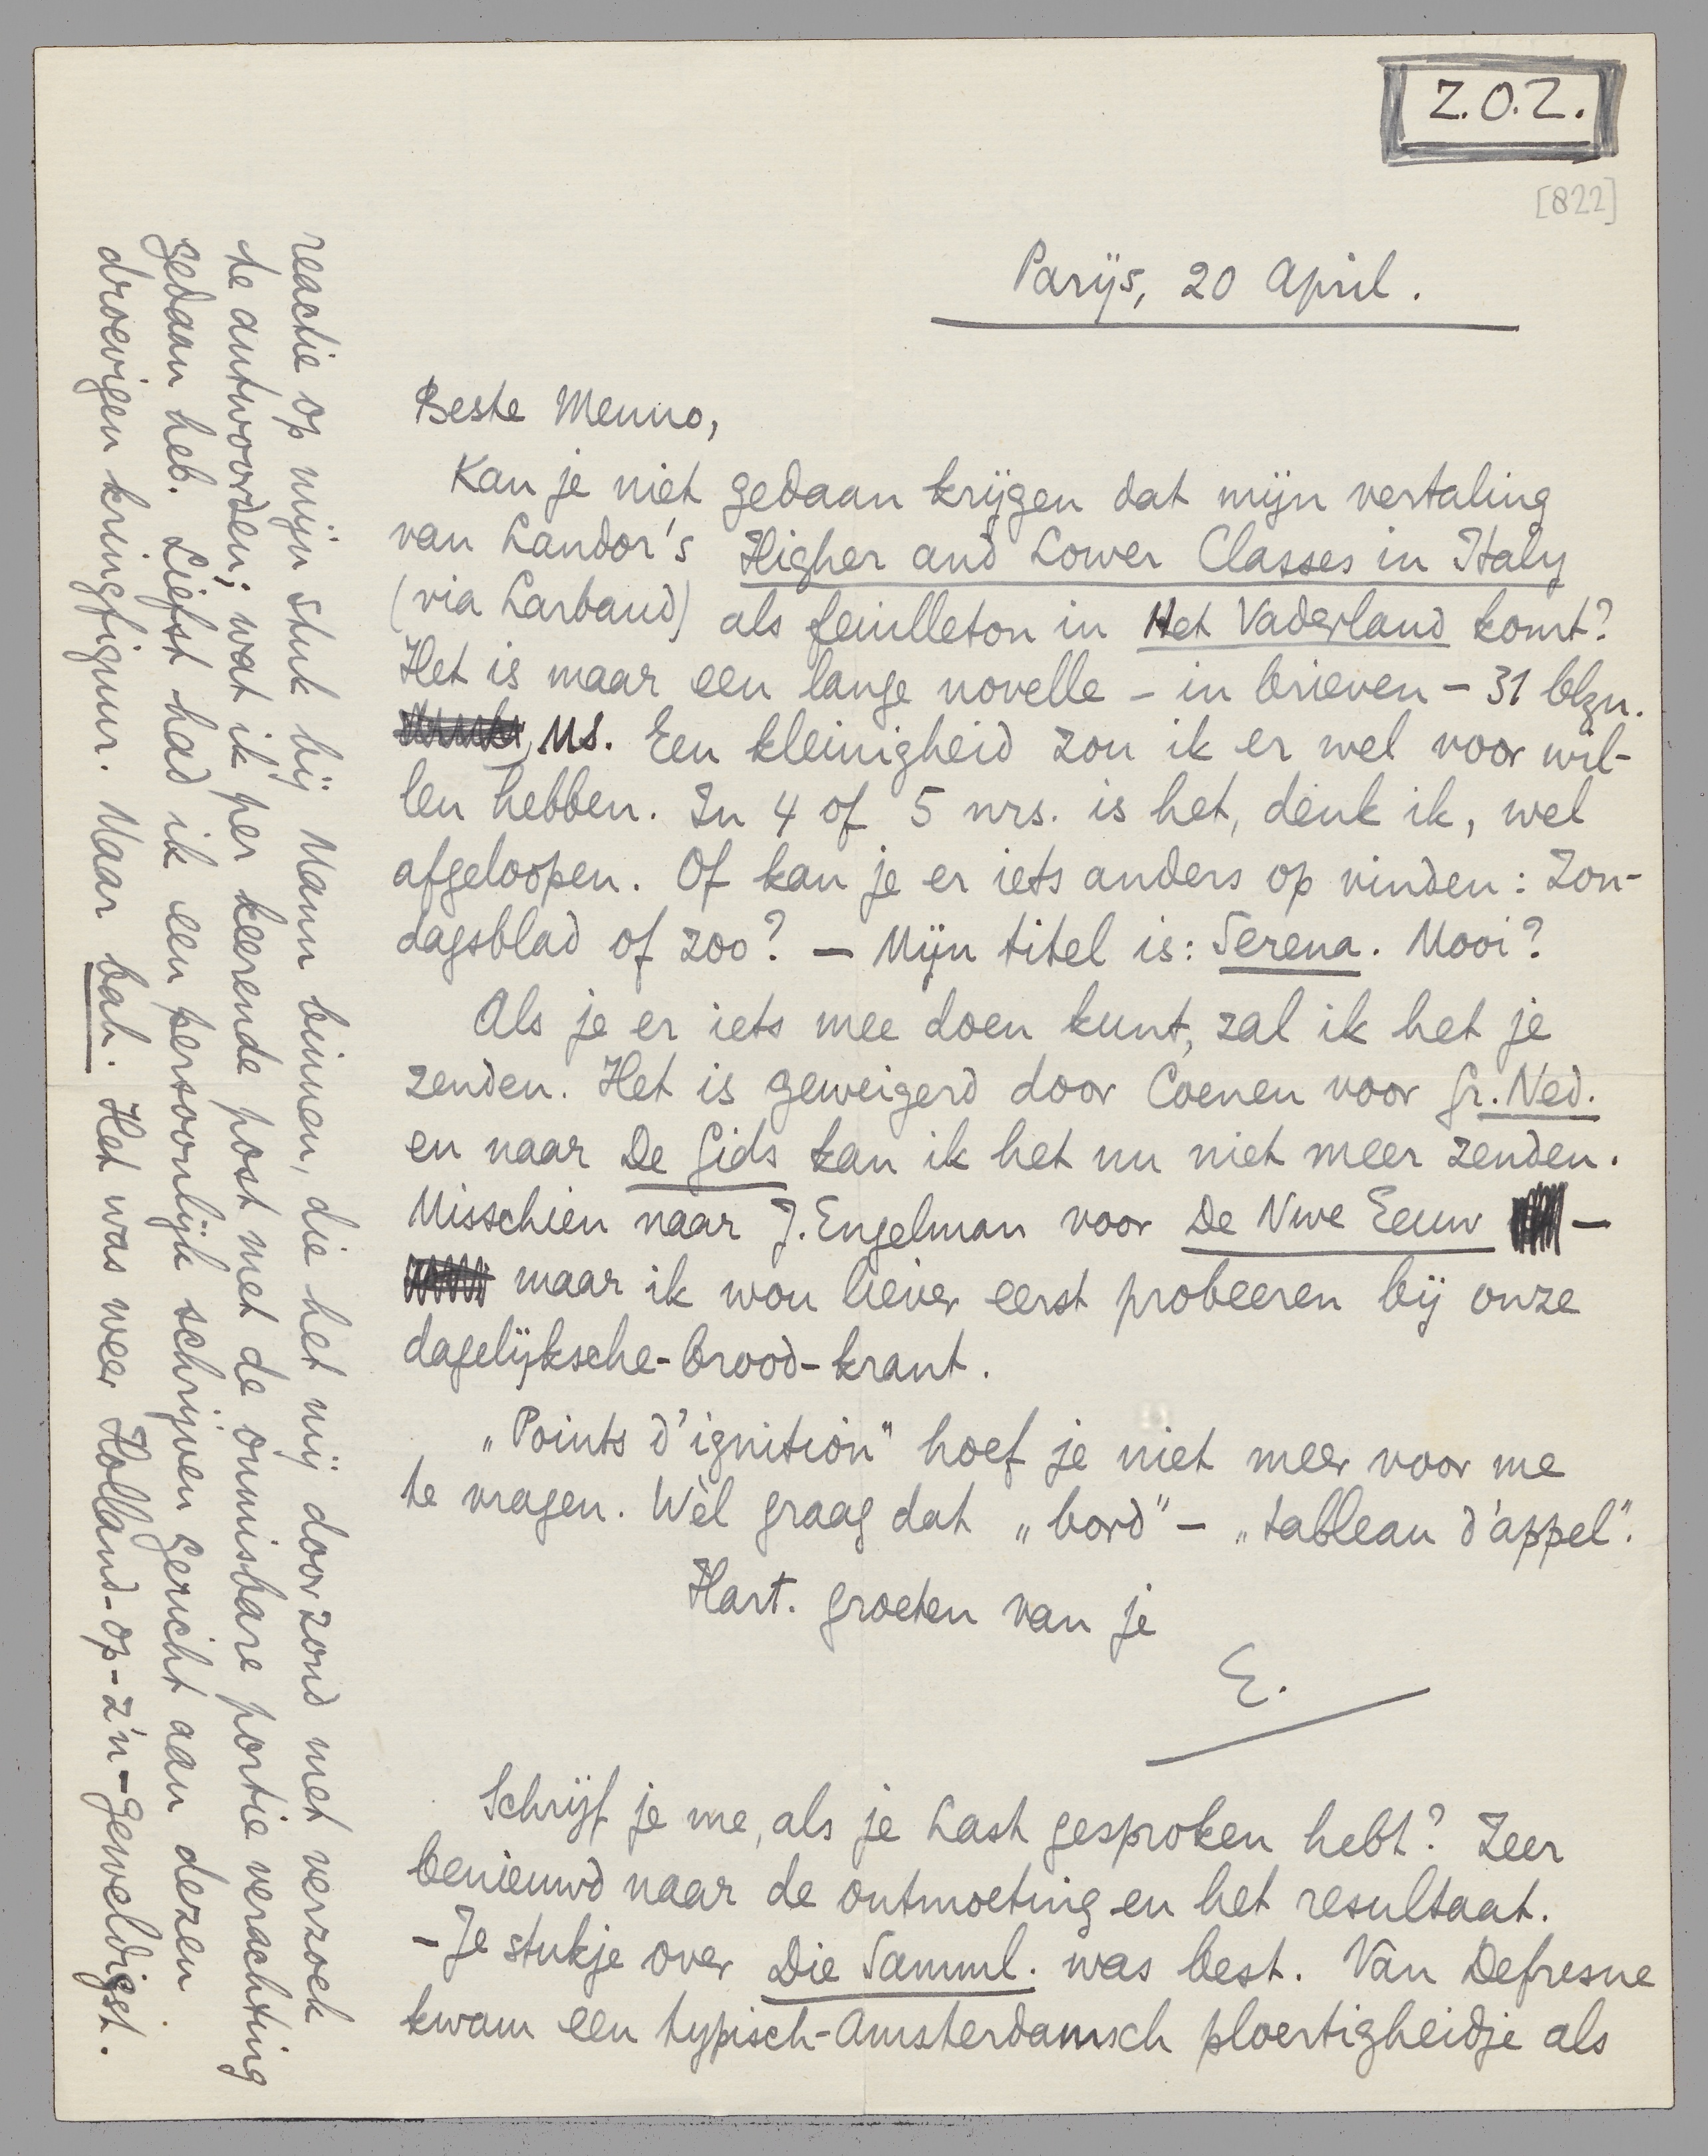 Z.O.Z.
[822]
Parijs, 20 April.
Beste Menno,
Kan je niet gedaan krijgen dat mijn vertaling
van Landor's Higher and Lower Classes in Italy
(via Larbaud) als feuilleton in Het Vaderland komt?
Het is maar een lange novelle – in brieven – 31 blzn.
MS. Een kleinigheid zou ik er wel voor wil-
len hebben. In 4 of 5 nrs. is het, denk ik, wel
afgeloopen. Of kan je er iets anders op vinden: Zon-
dagsblad of zoo? – Mijn titel is: Serena. Mooi?
Als je er iets mee doen kunt, zal ik het je
zenden. Het is geweigerd door Coenen voor Gr. Ned.
en naar De Gids kan ik het nu niet meer zenden.
Misschien naar J. Engelman voor De Nwe Eeuw –
maar ik wou liever eerst probeeren bij onze
dagelijksche-brood-krant.
„Points d'ignition" hoef je niet meer voor me
te vragen. Wèl graag dat „bord" – „tableau d'appel".
Hart. groeten van je
E.
Schrijf je me, als je Last gesproken hebt? Zeer
benieuwd naar de ontmoeting en het resultaat.
– Je stukje over Die Samml. was best. Van Defresne
kwam een typisch-Amsterdamsch ploertigheidje als
reactie op mijn stuk bij Mann binnen, die het mij doorzond met verzoek
te antwoorden; wat ik per keerende post met de onmisbare portie verachting
gedaan heb. Liefst had ik een persoonlijk schrijven gericht aan dezen
droevigen kringfiguur. Maar bah. Het was weer Holland-op-z'n-geweldigst.